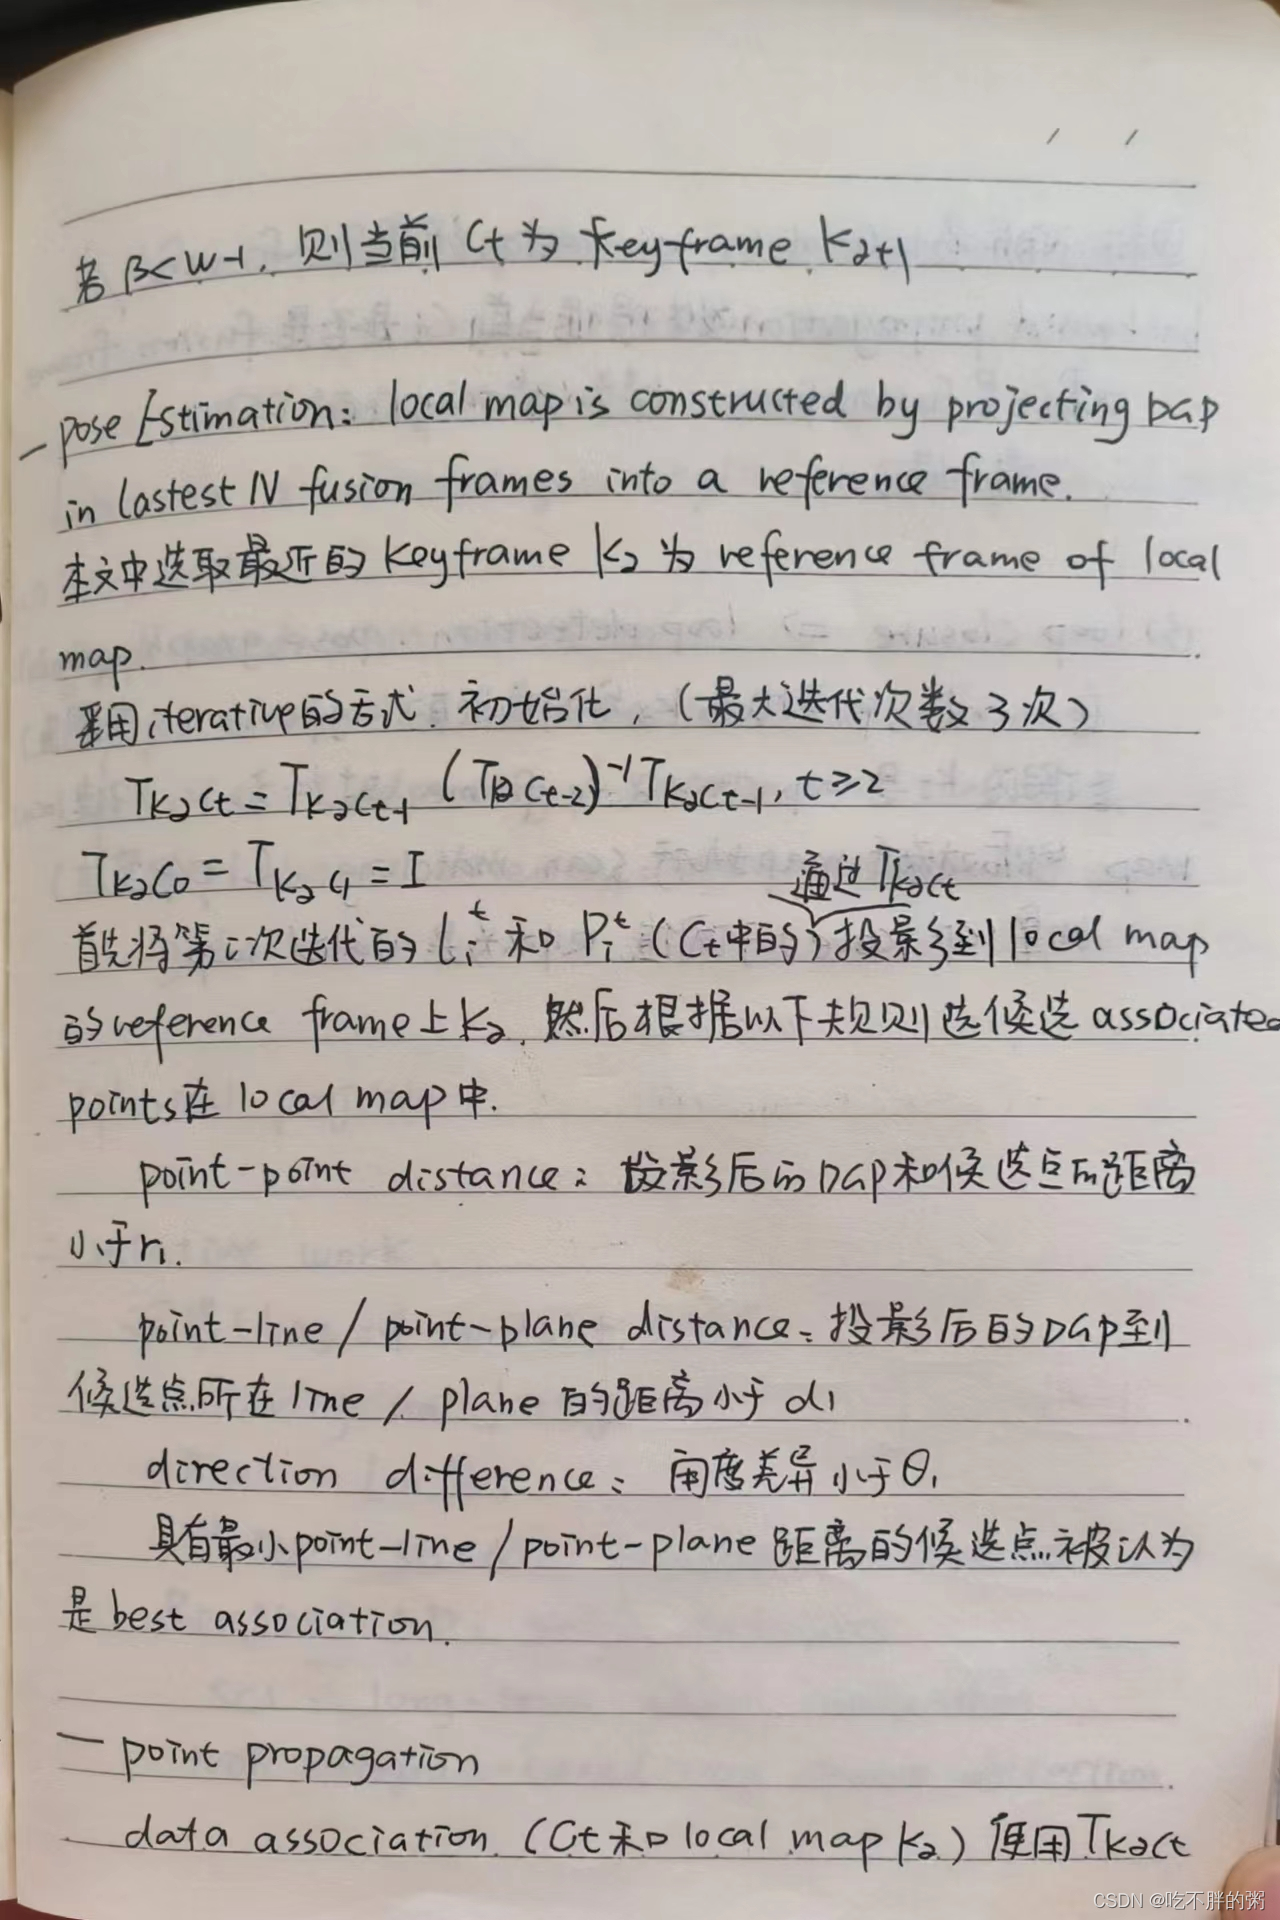 若 β<W-1, 则当前 Ct 为 keyframe K2+1
- pose Estimation: local map is constructed by projecting DGP
in lastest N fusion frames into a reference frame.
本文中选取最近的 keyframe K2 为 reference frame of local
map.
采用 iterative的方式 初始化, (最大迭代次数3次)
TK2Ct = TK2Ct-1 (TK2Ct-2)⁻¹ TK2Ct-1, t≥2
TK2C0 = TK2C1 = I
通过TK2Ct
首先将第i次迭代的 lᵢᵗ 和 Pᵢᵗ (Ct中的) 投影到 local map
的reference frame上K2, 然后根据以下规则选候选 associated
points在 local map中.
point-point distance: 投影后的DGP和候选点的距离
小于r1.
point-line / point-plane distance: 投影后的DGP到
候选点所在 line / plane 的距离小于 d1
direction difference: 角度差异小于θ1
具有最小point-line/point-plane 距离的候选点被认为
是 best association.
- point propagation
data association (Ct和 local map K2) 使用 TK2Ct
CSDN @吃不胖的粥